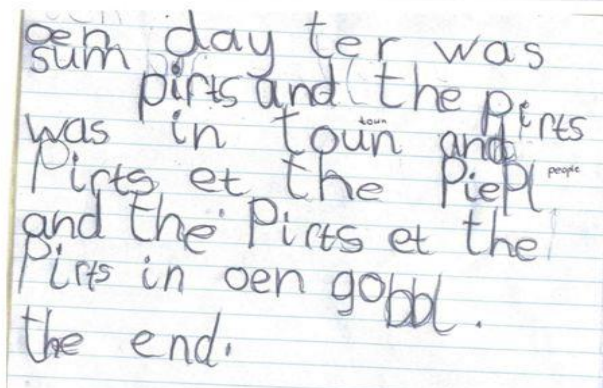 oen day ter was
sum
pirts and the pirts
was in toun toun and
Pirts et the Piepl people
and the Pirts et the
Pirts in oen gobbl.
the end.